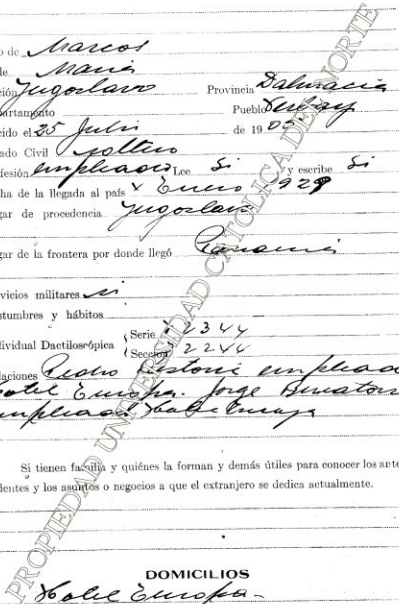 o de Marcos
de Maria
ción Yugoslavo Provincia Dalmacia
partamento Pueblo
cido el 25 Julio de 190
ado Civil soltero
fesión empleado Lee Si y escribe Si
ha de la llegada al país Enero 1929
gar de procedencia Yugoslavia
gar de la frontera por donde llegó
vicios militares si
stumbres y hábitos
dividual Dactiloscópica Serie 2344
Sección 2244
laciones Pedro empleado
Hotel Europa. Jorge
empleado Hotel
Si tienen familia y quiénes la forman y demás útiles para conocer los ante
dentes y los asuntos o negocios a que el extranjero se dedica actualmente.
DOMICILIOS
Hotel Europa
PROPIEDAD UNIVERSIDAD CATOLICA DEL NORTE